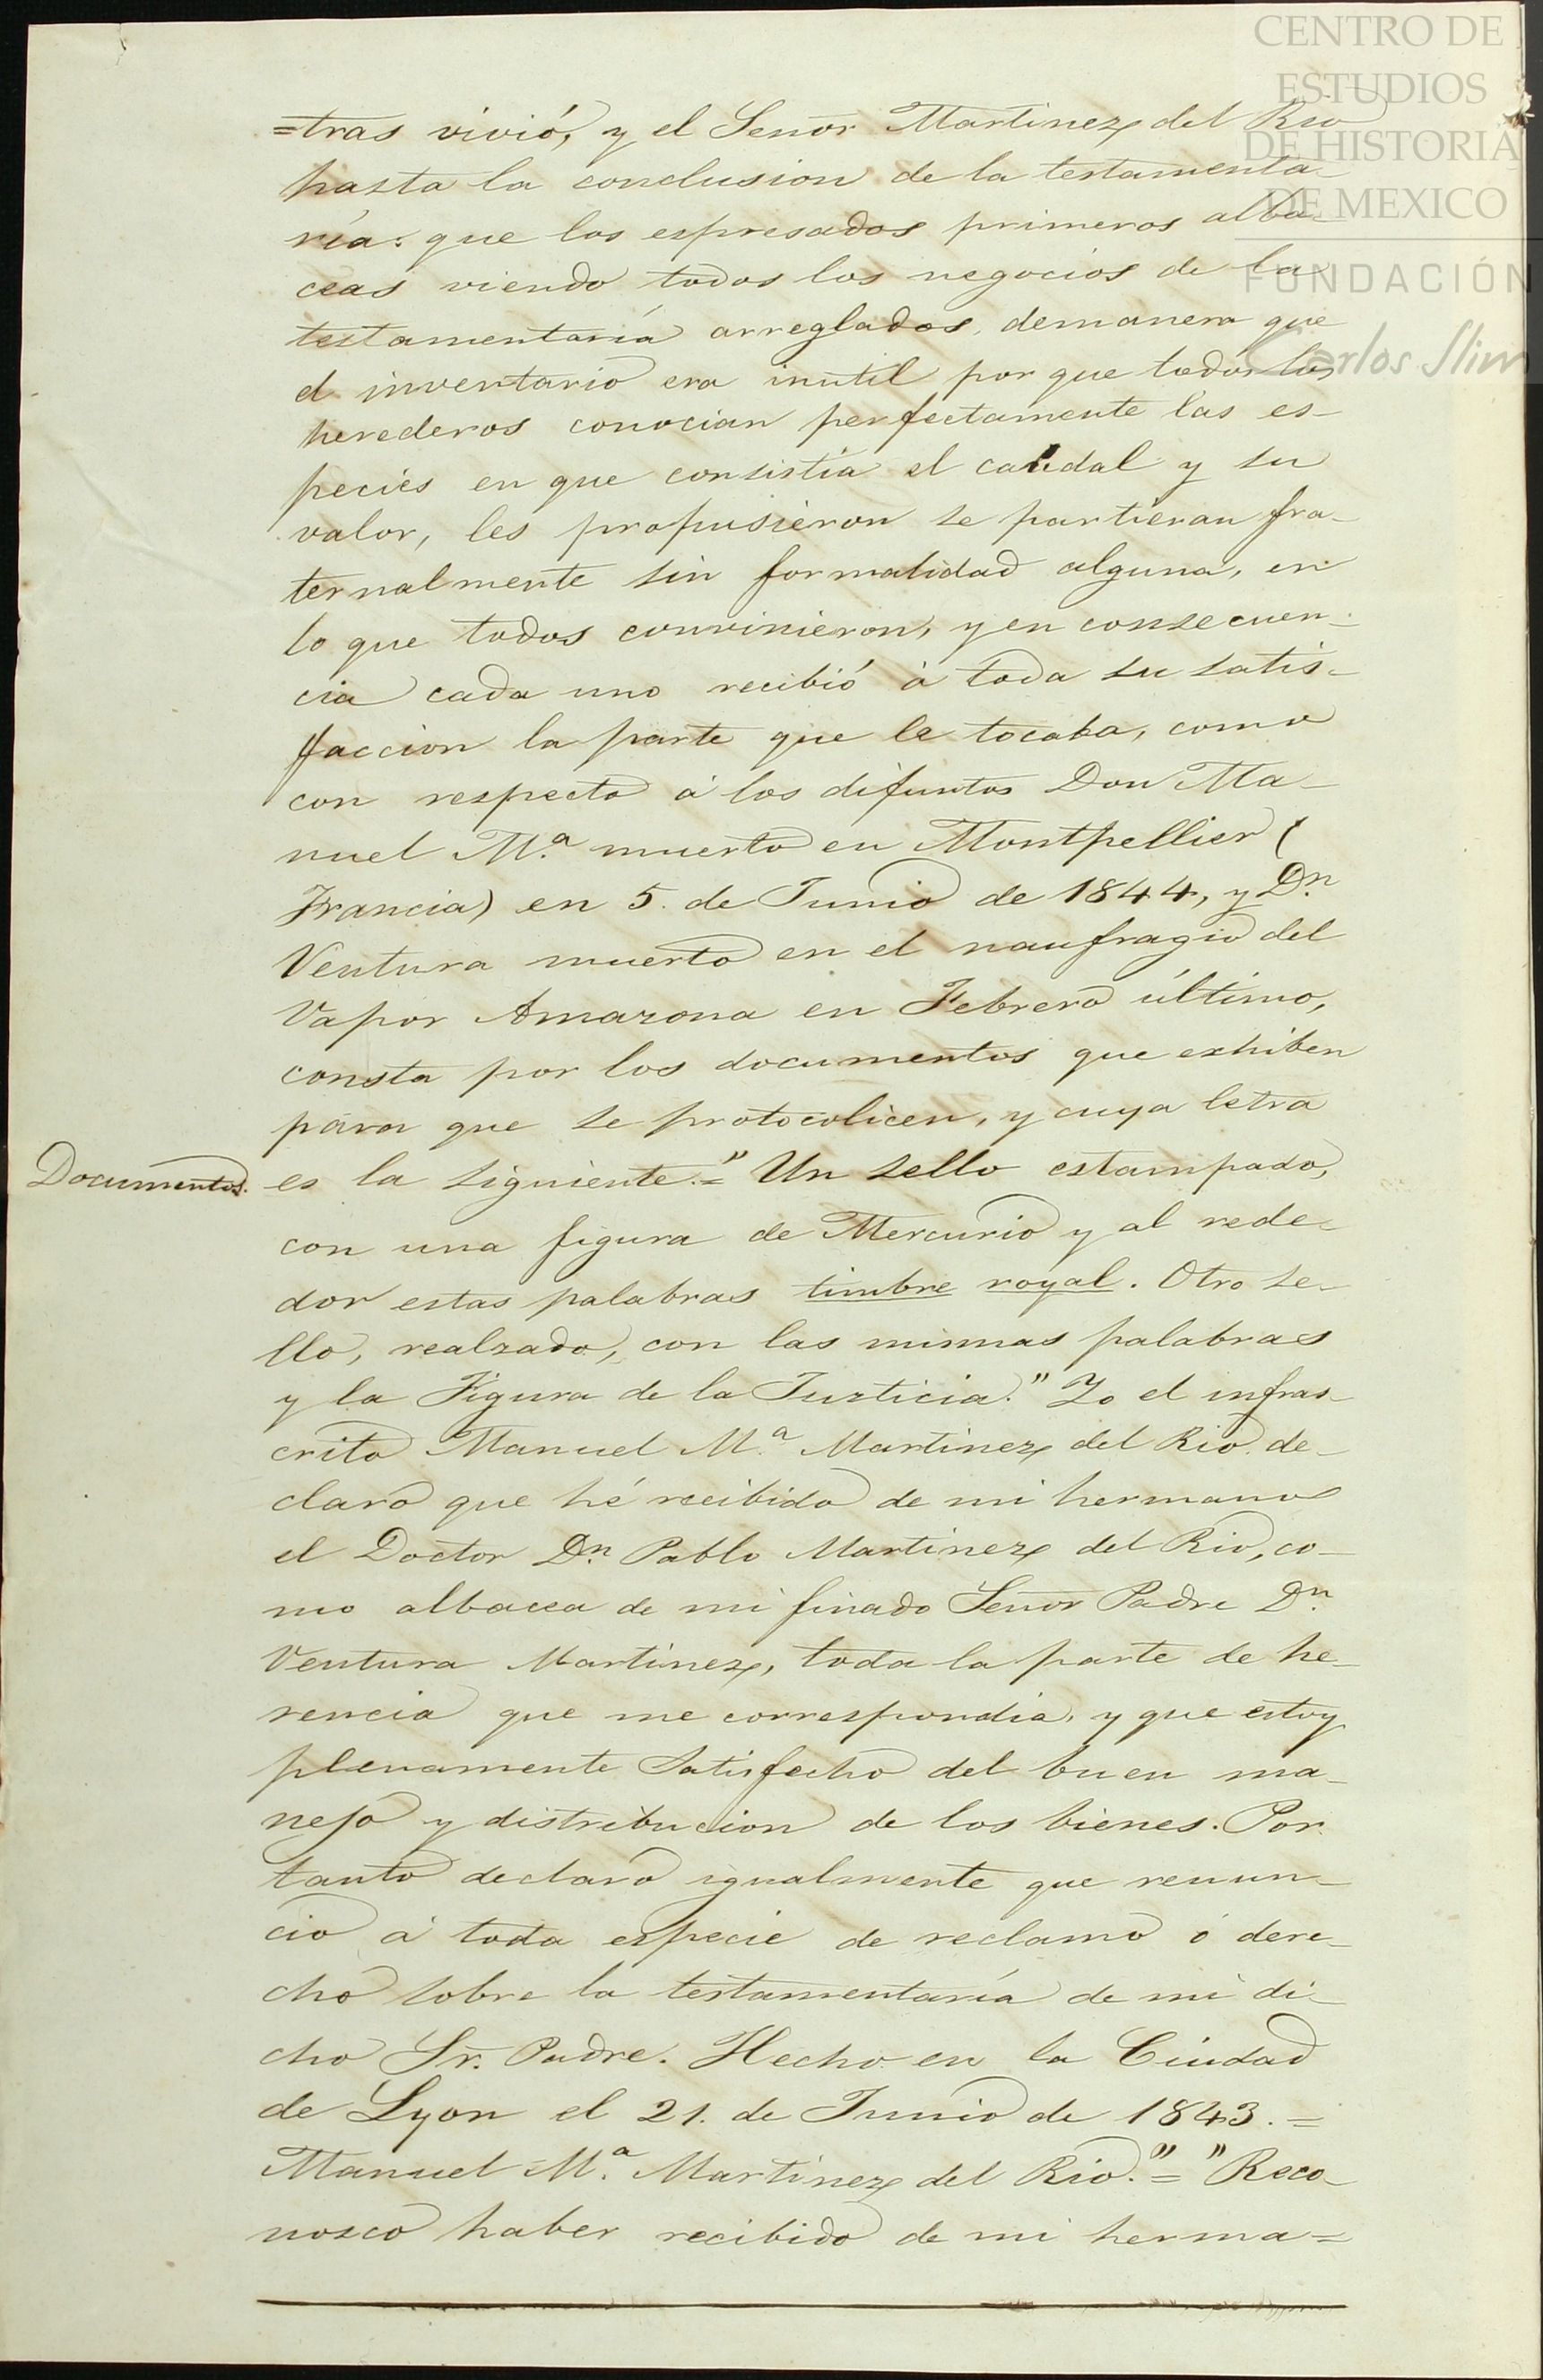 CENTRO DE
ESTUDIOS
DE HISTORIA
DE MEXICO
FUNDACIÓN
Carlos Slim
=tras vivió, y el Señor Martinez del Rio
hasta la conclusion de la testamenta-
ría: que los espresados primeros alba-
ceas viendo todos los negocios de la
testamentaría arreglados, demanera que
el inventario era inutil por que todos los
herederos conocian perfectamente las es-
pecies en que consistia el caudal y su
valor, les propusieron se partieran fra-
ternalmente sin formalidad alguna, en
lo que todos convinieron, y en consecuen-
cia cada uno recibió á toda su satis-
faccion la parte que le tocaba, como
con respecto á los difuntos Don Ma-
nuel M.ª muerto en Montpellier (
Francia) en 5. de Junio de 1844, y Dn.
Ventura muerto en el naufragio del
Vapor Amazona en Febrero último,
consta por los documentos que exhiben
para que se protocolicen, y cuya letra
Documentos. es la siguiente.=" Un sello estampado,
con una figura de Mercurio y al rede-
dor estas palabras timbre royal. Otro se-
llo, realzado, con las mismas palabras
y la Figura de la Justicia." Yo el infras-
crito Manuel M.ª Martinez del Rio de-
claro que hé recibido de mi hermano
el Doctor Dn. Pablo Martinez del Rio, co-
mo albacea de mi finado Señor Padre Dn.
Ventura Martinez, toda la parte de he-
rencia que me correspondia, y que estoy
plenamente satisfecho del buen ma-
nejo y distribucion de los bienes. Por
tanto declaro igualmente que renun-
cio á toda especie de reclamo ó dere-
cho sobre la testamentaría de mi di-
cho Sr. Padre. Hecho en la Ciudad
de Lyon el 21. de Junio de 1843.=
Manuel M.ª Martinez del Rio."=" Reco-
nosco haber recibido de mi herma=